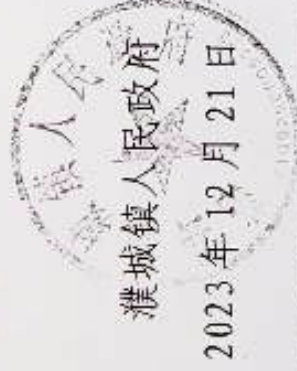 濮城镇人民政府
2023年12月21日